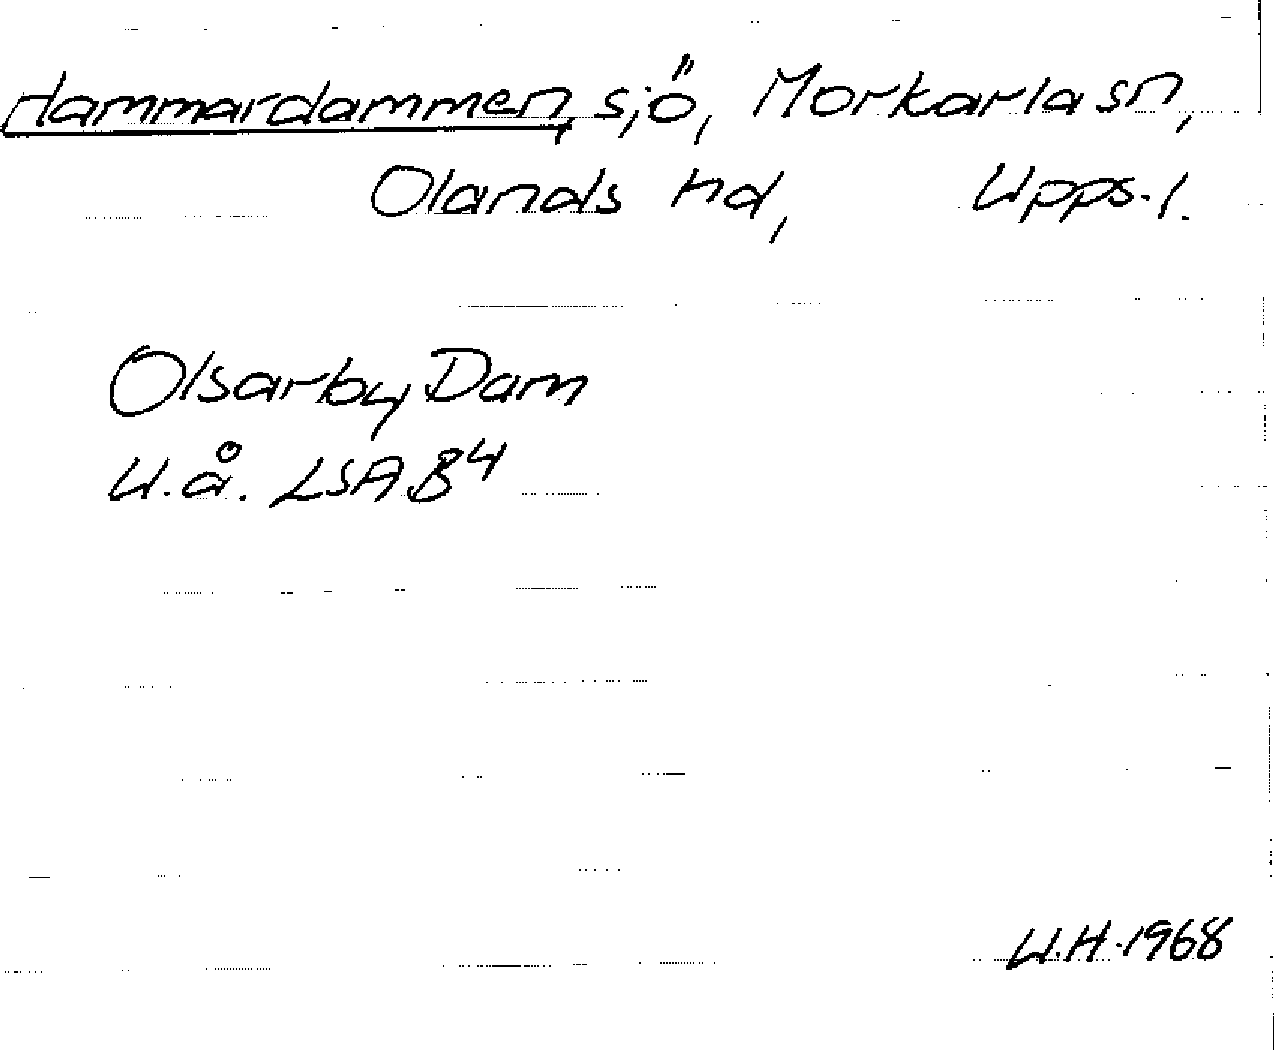 Hammardammen, sjö, Morkarla sn,
Olands hd, Upps. l.
Olsarby Dam
u.å. LSA B 4
U.H. 1968